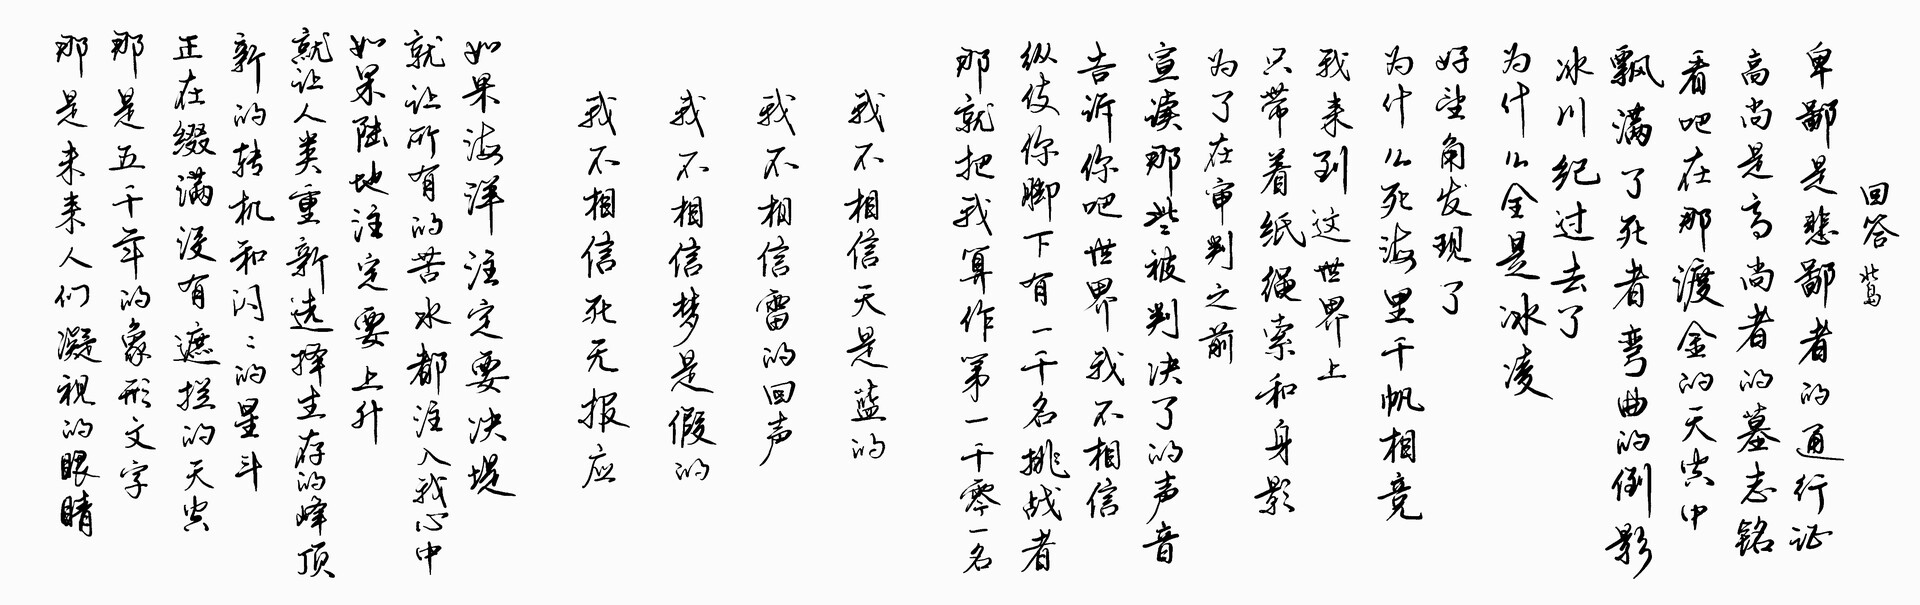 回答 北岛
卑鄙是悲鄙者的通行证
高尚是高尚者的墓志铭
看吧在那渡金的天空中
飘满了死者弯曲的倒影
冰川纪过去了
为什么全是冰凌
好望角发现了
为什么死海里千帆相竞
我来到这世界上
只带着纸绳索和身影
为了在审判之前
宣读那些被判决了的声音
告诉你吧世界我不相信
纵使你脚下有一千名挑战者
那就把我算作第一千零一名
我不相信天是蓝的
我不相信雷的回声
我不相信梦是假的
我不相信死无报应
如果海洋注定要决堤
就让所有的苦水都注入我心中
如果陆地注定要上升
就让人类重新选择生存的峰顶
新的转机和闪〻的星斗
正在缀满没有遮拦的天空
那是五千年的象形文字
那是未来人们凝视的眼睛